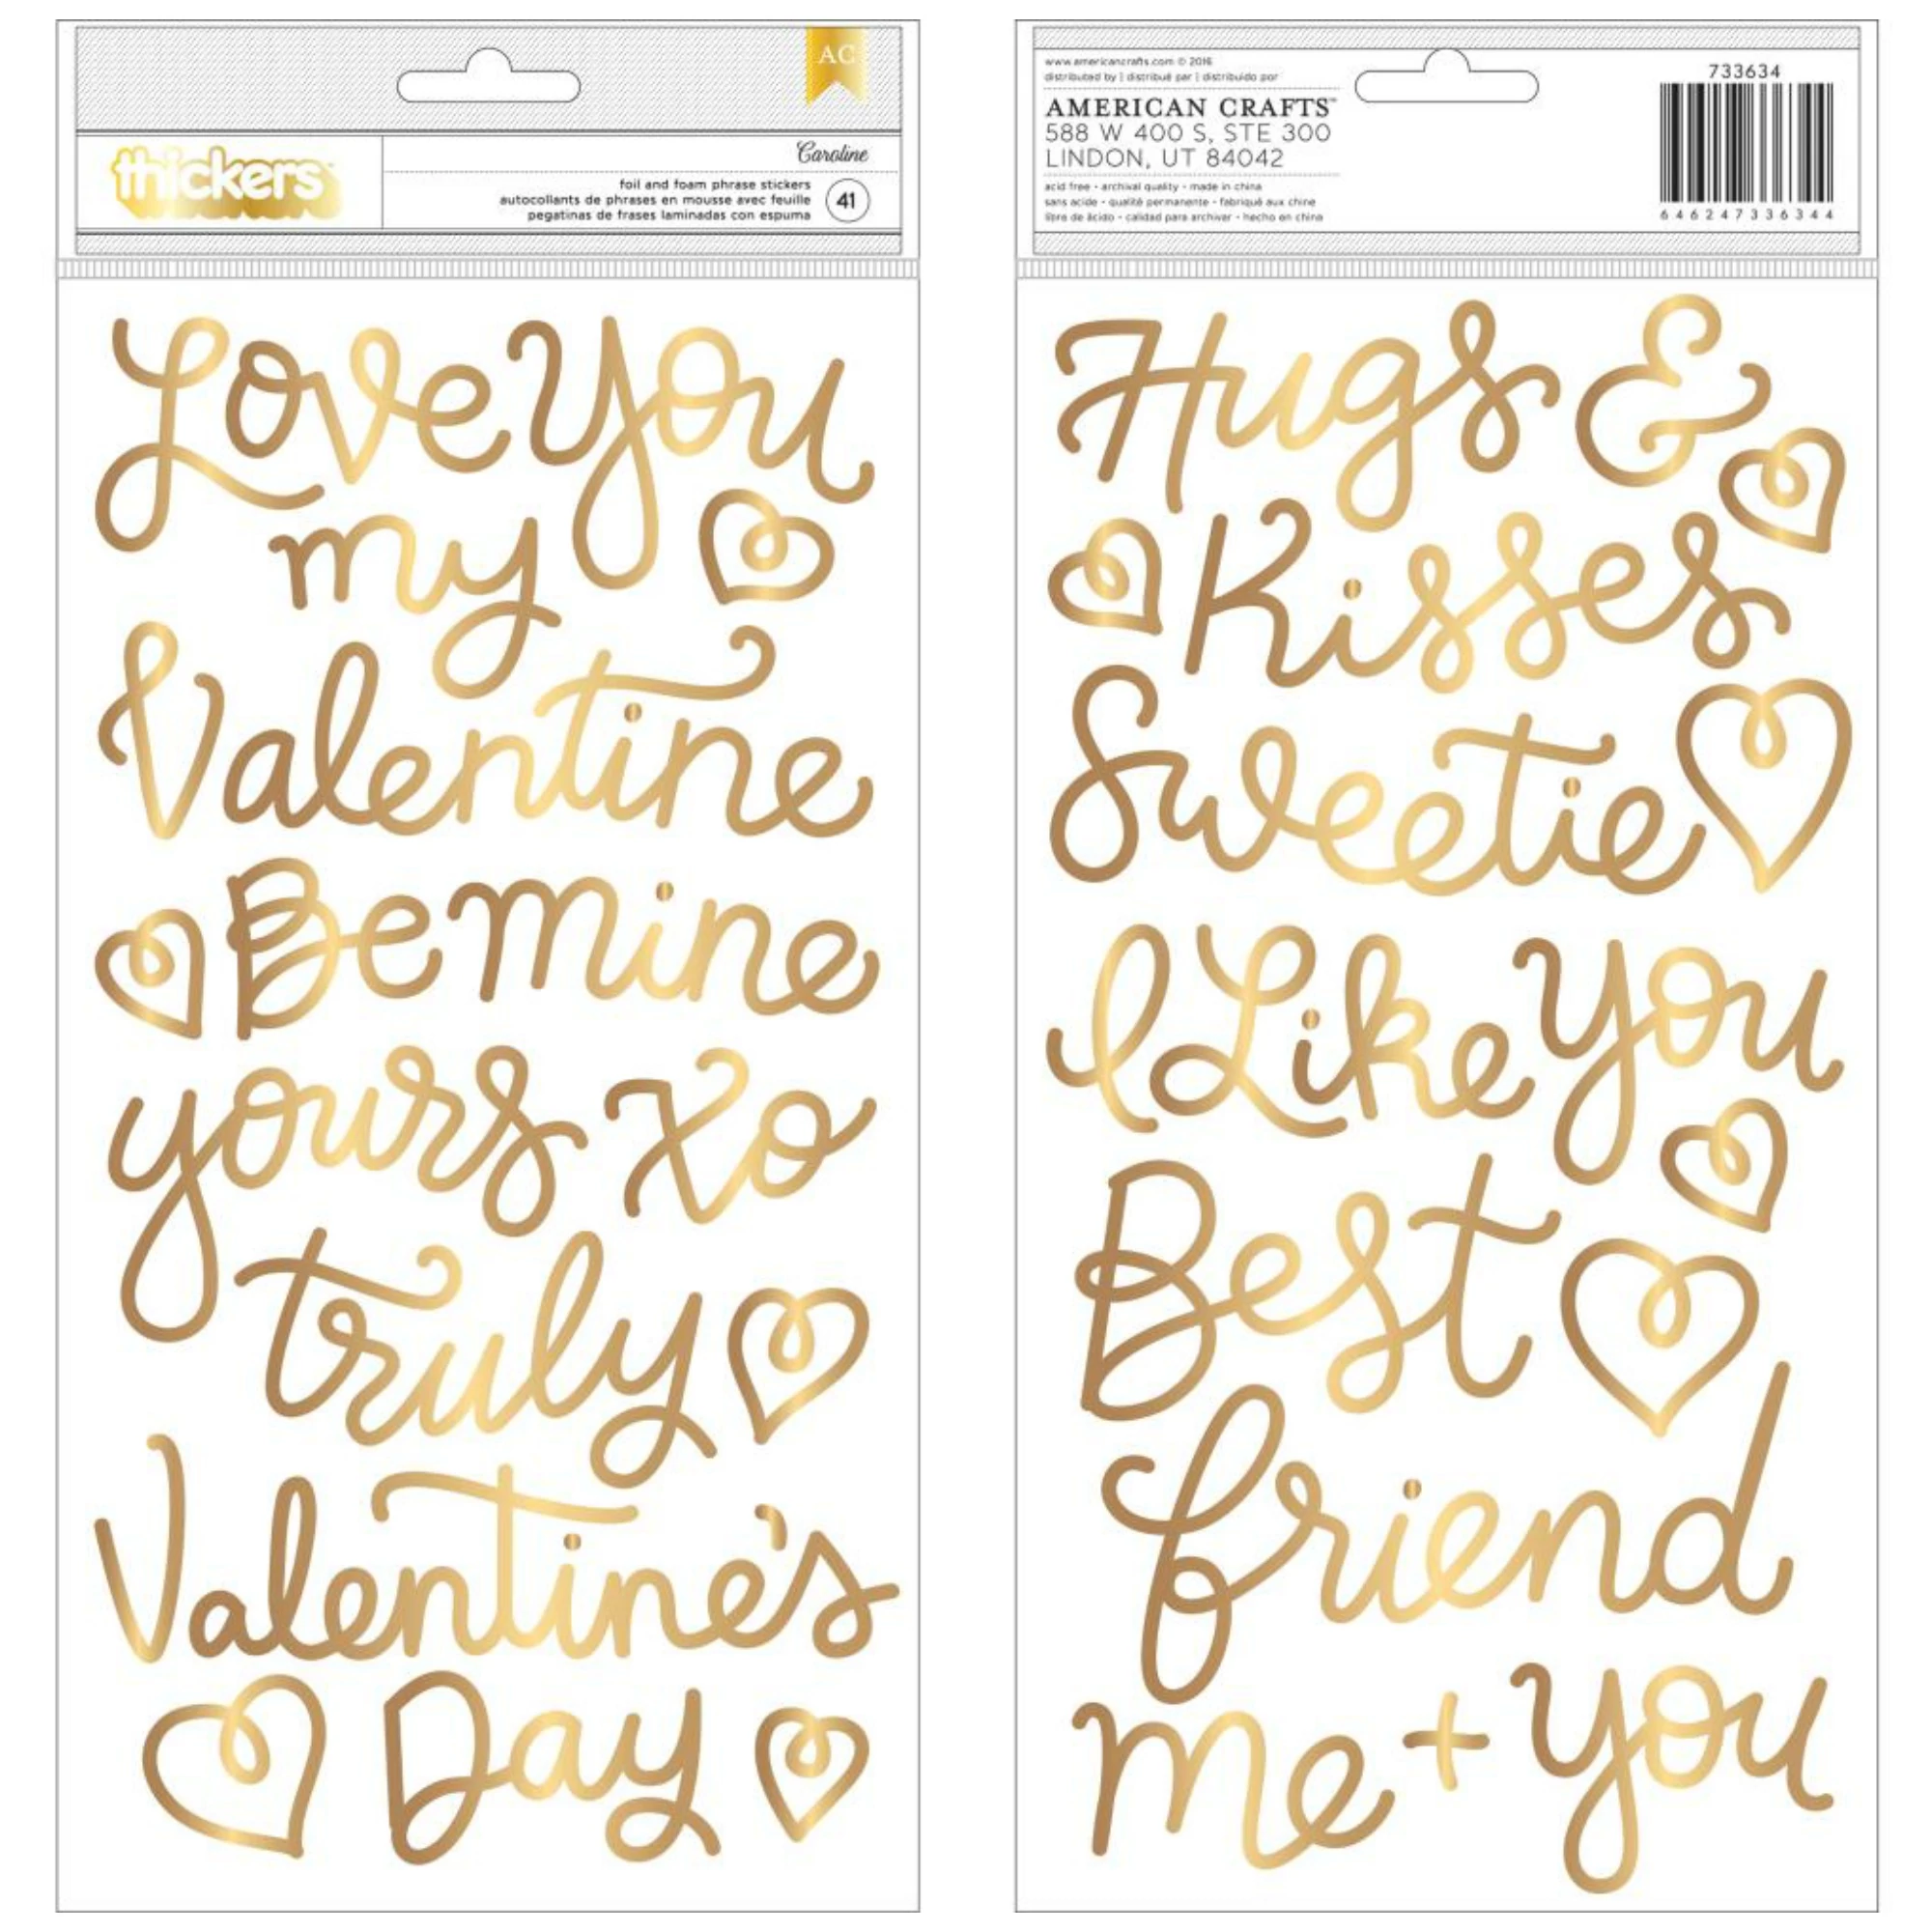 AC
thickers
Caroline
foil and foam phrase stickers
autocollants de phrases en mousse avec feuille
pegatinas de frases laminadas con espuma
41
Love You
my
Valentine
Be mine
yours xo
truly
Valentine's
Day
www.americancrafts.com © 2016
distributed by | distribué par | distribuido por
AMERICAN CRAFTS™
588 W 400 S, STE 300
LINDON, UT 84042
acid free • archival quality • made in china
sans acide • qualité permanente • fabriqué aux chine
libre de ácido • calidad para archivar • hecho en china
733634
646247336344
Hugs &
Kisses
Sweetie
I Like you
Best
friend
me + you